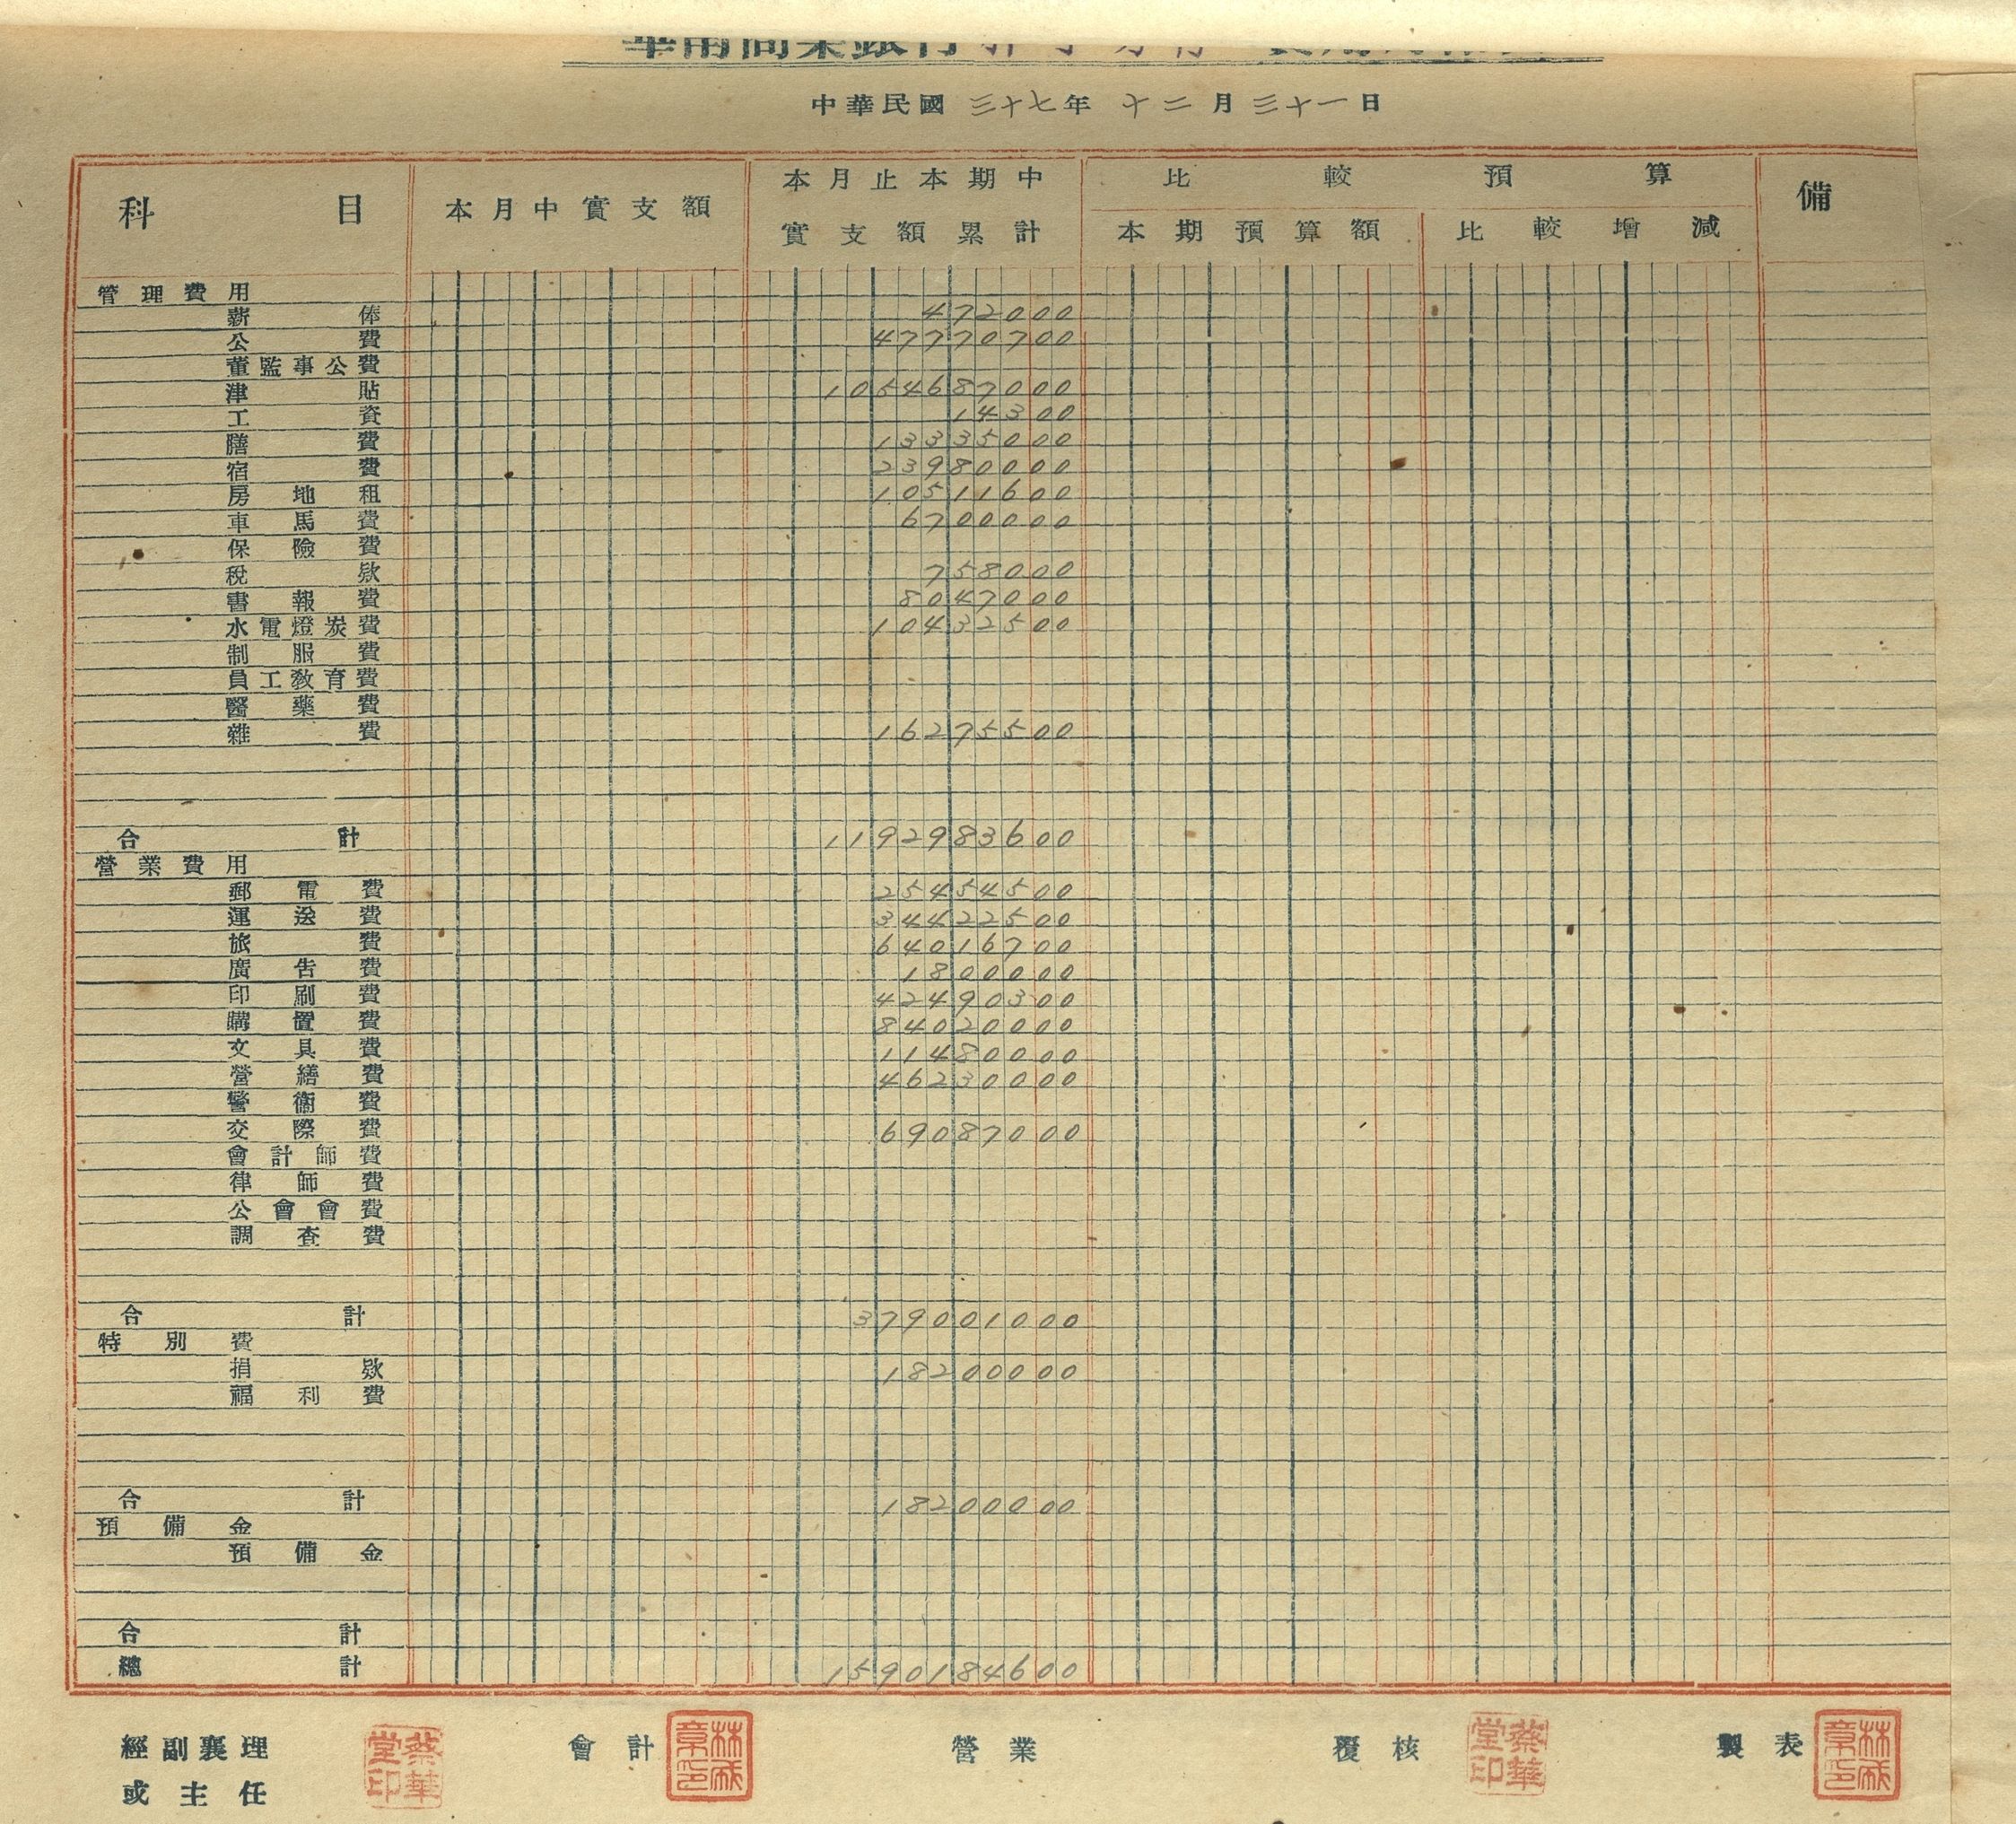 華南商業銀行
中華民國 三十七年 十二月 三十一日
科目 本月中實支額 本月止本期中實支額累計 比較預算 備
本期預算額 比較增減
管理費用
薪俸 472000
公費 47770700
董監事公費
津貼 1054687000
工資 14300
膳費 13335000
宿費 23980000
房地租 10511600
車馬費 6700000
保險費
稅款 758000
書報費 8047000
水電燈炭費 10432500
制服費
員工教育費
醫藥費
雜費 16275500
合計 1192983600
營業費用
郵電費 25454500
運送費 34422500
旅費 64016700
廣告費 1800000
印刷費 42490300
購置費 84020000
文具費 11480000
營繕費 46230000
警衛費
交際費 69087000
會計師費
律師費
公會會費
調查費
合計 379001000
特別費
捐款 18200000
福利費
合計 18200000
預備金
預備金
合計
總計 1590184600
經副襄理 會計 營業 覆核 製表
或主任
蔡華堂印 蔡華堂印